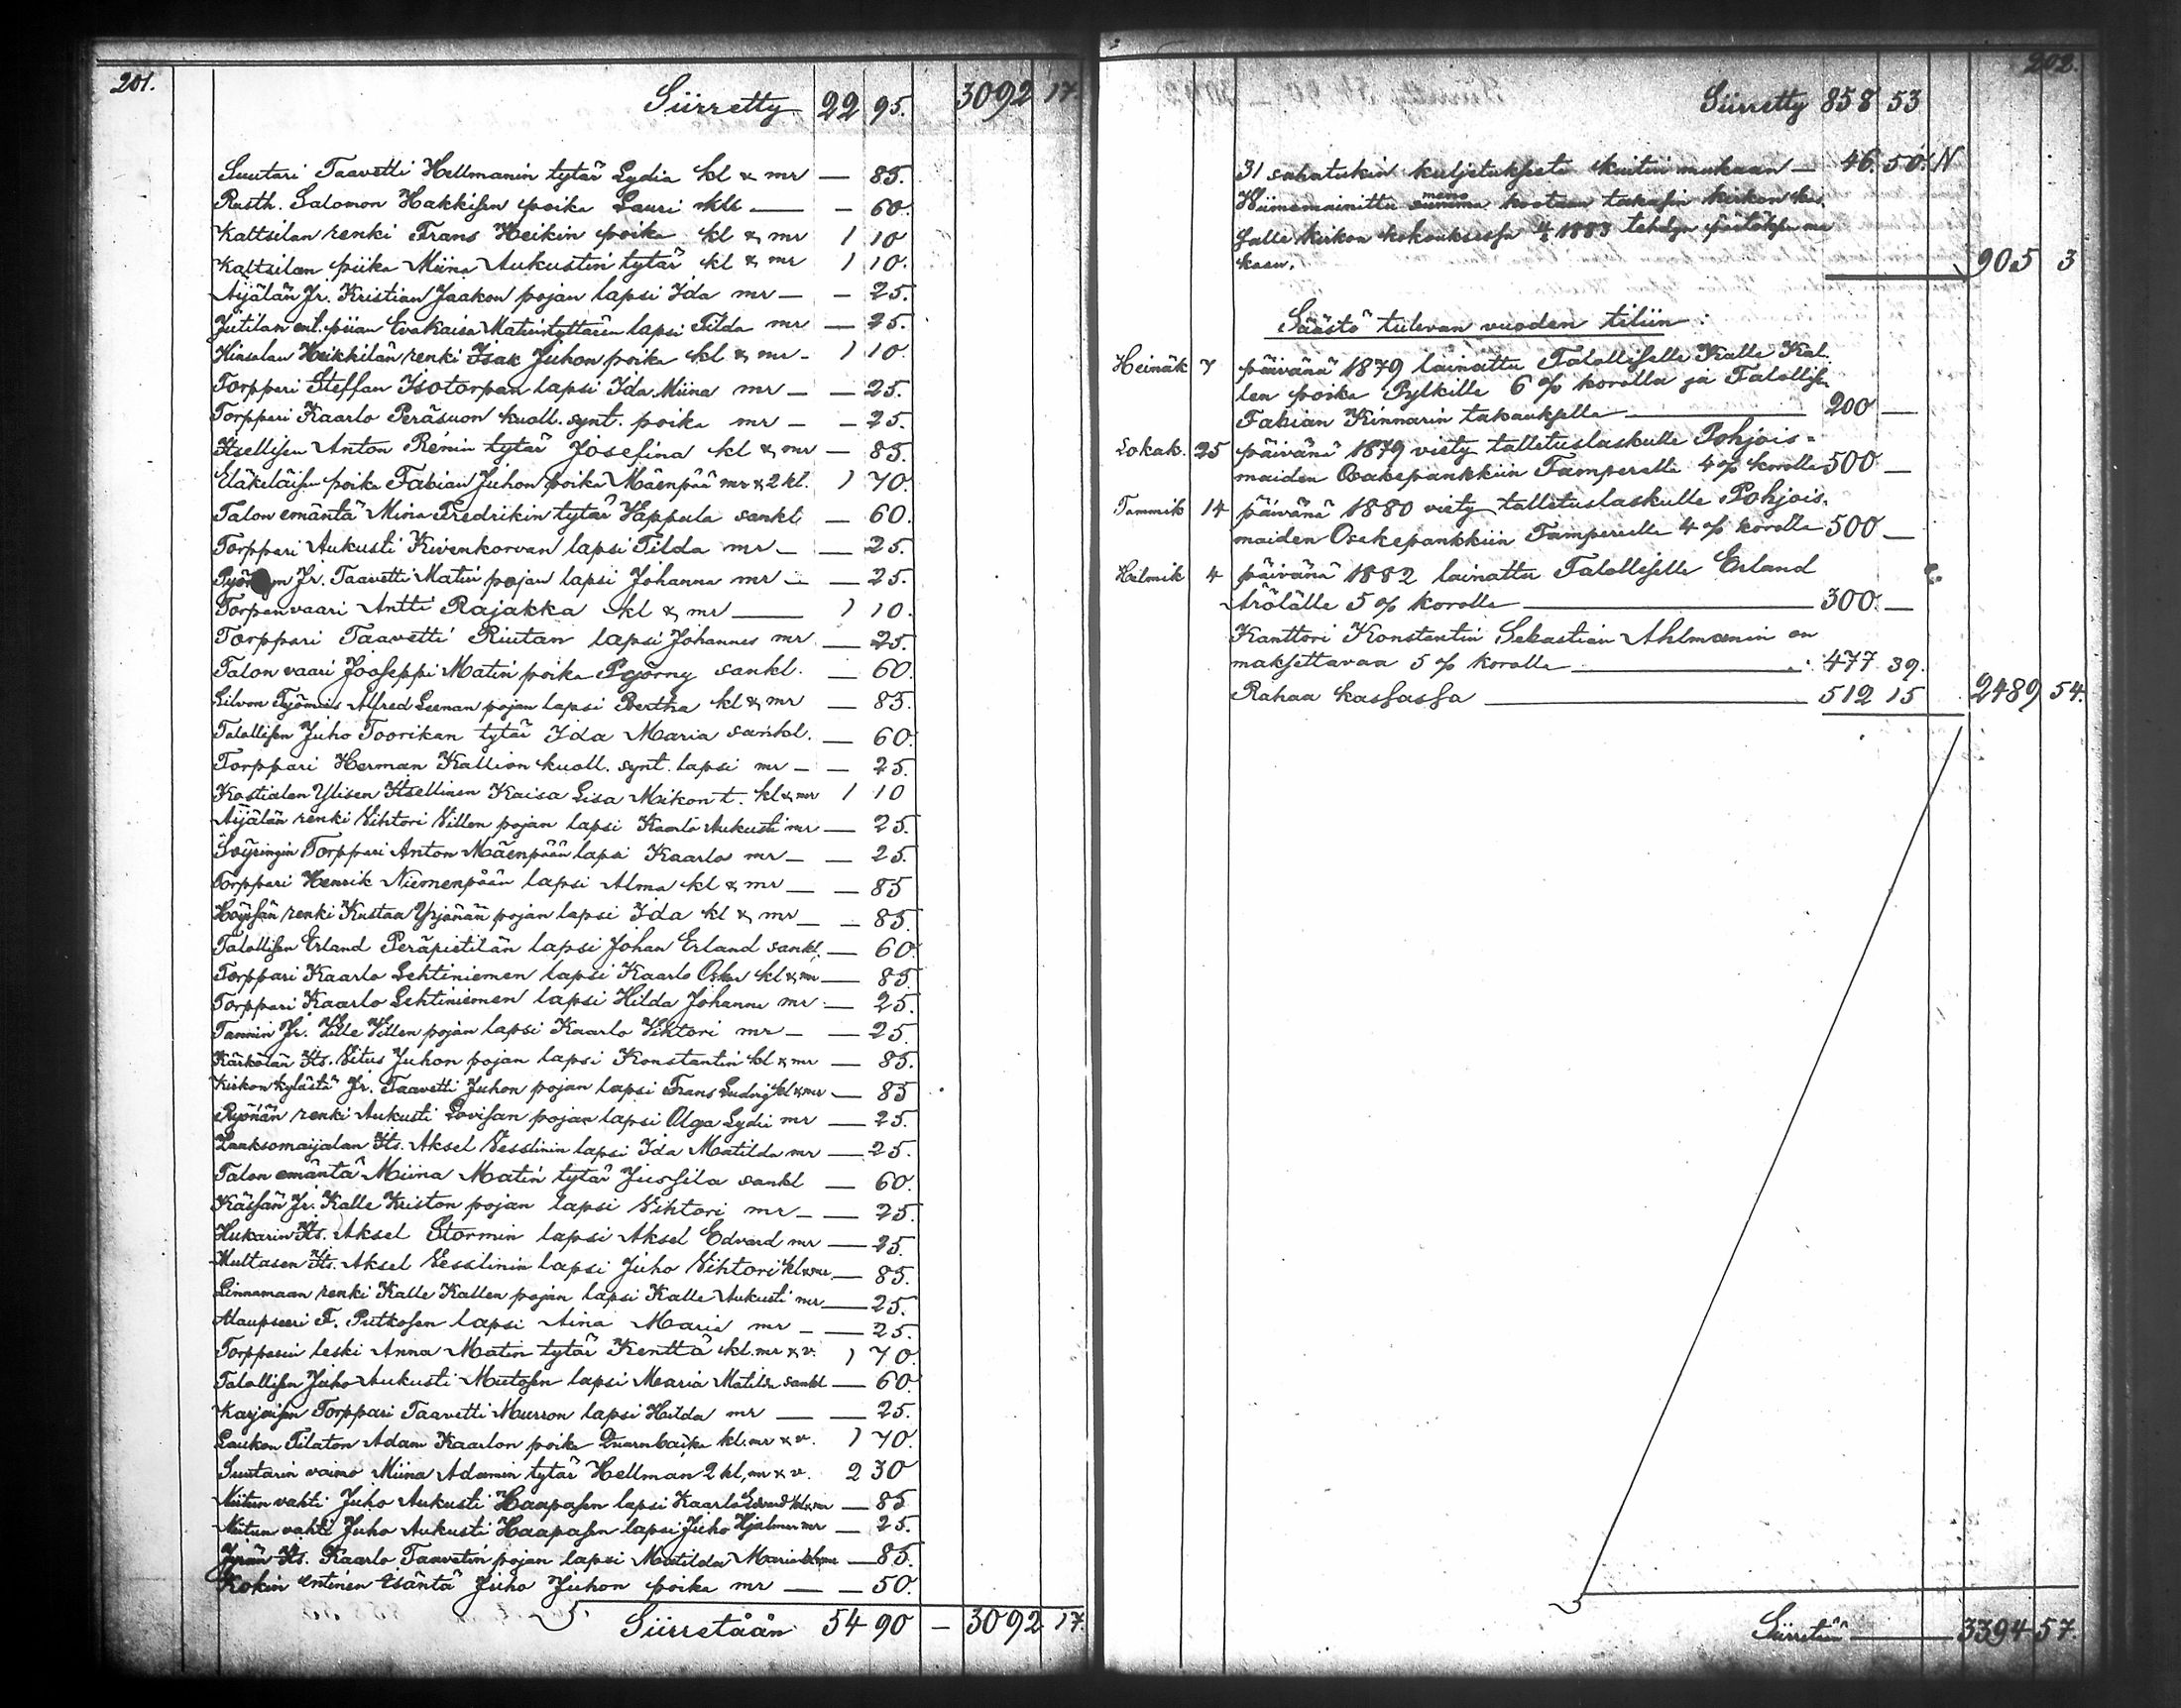 201.
Siirretty 22 95. 3092 17.
Suutari Taavetti Hellmanin tytär Lydia kl & mr — 85.
Rusth. Salomon Hakkisen poika Lauri skl — — 60.
Kaltsilan renki Frans Heikin poika kl & mr 1 10
Kaltsilan piika Miina Aukustin tytär kl & mr 1 10.
Äijälän Jr. Kristian Jaakon pojan lapsi Ida mr — — 25.
Jutilan ent. piian Eva Kaisa Matintyttären lapsi Tilda mr — 25.
Hinsalan Heikkilän renki Isak Juhon poika kl & mr — 1 10.
Torppari Steffan Isotorpan lapsi Ida Miina mr — — 25.
Torppari Kaarlo Peräsuon kuoll. synt. poika mr — — 25.
Itsellisen Anton Renin tytär Josefina kl & mr — 85.
Eläkeläisen poika Fabian Juhon poika Mäenpää mr & 2 kl. 1 70.
Talon emäntä Miina Fredrikin tytär Vappula sankl — 60.
Torppari Aukusti Kivenkorvan lapsi Tilda mr — — 25.
Jr. Taavetti Matin pojan lapsi Johanna mr — — 25.
Torpanvaari Antti Rajakka kl & mr — 1 10.
Torppari Taavetti Riutan lapsi Johannes mr — 25.
Talon vaari Jooseppi Matin poika Pyörny sankl. — 60.
Työmies Alfred Leenan pojan lapsi Bertha kl & mr — 85.
Talollisen Juho Toorikan tytär Ida Maria sankl. — 60.
Torppari Herman Kallion kuoll. synt. lapsi mr — — 25.
Kostialan Ylisen Itsellinen Kaisa Liisa Mikon t. kl & mr 1 10
Äijälän renki Vihtori Villen pojan lapsi Kaarlo Aukusti mr — 25.
Söyringin Torppari Anton Mäenpään lapsi Kaarlo mr — — 25.
Torppari Henrik Niemenpään lapsi Alma kl & mr — — 85
Höyssän renki Kustaa Yrjänän pojan lapsi Ida kl & mr — — 85.
Talollisen Erland Peräpietilän lapsi Johan Erland sankl. — 60.
Torppari Kaarlo Lehtiniemen lapsi Kaarlo Oskar kl & mr — 85.
Torppari Kaarlo Lehtiniemen lapsi Hilda Johanna mr — 25.
Tannin Jr. Ville Villen pojan lapsi Kaarlo Vihtori mr — — 25.
Kärkölän Its. Vitus Juhon pojan lapsi Konstantin kl & mr — 85.
Kirkon kylästä Jr. Taavetti Juhon pojan lapsi Frans Ludvig kl & mr — 85
Pyönän renki Aukusti Lovisan pojan lapsi Olga Lydia mr — 25.
Laaksomaijalan Its. Aksel Vesslinin lapsi Ida Matilda mr — 25.
Talon emäntä Miina Matin tytär Jussila sankl — 60.
Kässän Jr. Kalle Kriston pojan lapsi Vihtori mr — — 25.
Hukarin Its. Aksel Stormin lapsi Aksel Edvard mr — 25.
Multasen Its. Aksel Vesslinin lapsi Juho Vihtori kl & mr — 85.
Linnamaan renki Kalle Kallen pojan lapsi Kalle Aukusti mr — 25.
Alaupseeri F. Putkosen lapsi Aina Maria mr — — 25.
Torpparin leski Anna Matin tytär Kenttä kl. mr & v. 1 70.
Talollisen Juho Aukusti Mutosen lapsi Maria Matilda sankl — 60.
Karjoisen Torppari Taavetti Murron lapsi Hilda mr — — 25.
Laukon Tilaton Adam Kaarlon poika kl. mr & v. 1 70.
Suutarin vaimo Miina Adamin tytär Hellman 2 kl, mr & v. 2 30
Niitun vahti Juho Aukusti Haapasen lapsi Kaarlo Edvard kl & mr — 85
Niitun vahti Juho Aukusti Haapasen lapsi Juho Hjalmar mr — 25.
Its. Kaarlo Taavetin pojan lapsi Matilda Maria kl & mr — 85.
Kokin entinen isäntä Juho Juhon poika mr — — 50.
Siirretään 54 90 — 3092 17.
202.
Siirretty 858 53
31 sahatukin kuljetuksesta kuitin mukaan — 46. 50. N
Viimemainittu meno summa kootaan takasin kirkon kas.
salle kirkon kokouksessa 1883 tehdyn päätöksen mu
kaan. 905 3
Säästö tulevan vuoden tiliin:
Heinäk 7 päivänä 1879 lainattu Talolliselle Kalle Kal.
len poika Pylkille 6 % korolla ja Tallollisen
Fabian Kinnarin takauksella — 200 —
Lokak. 25 päivänä 1879 viety talletuslaskulle Pohjois-
maiden Osakepankkiin Tamperelle 4 % korolla 500 —
Tammik 14 päivänä 1880 viety talletuslaskulle Pohjois.
maiden Osakepankkiin Tamperelle 4 % korolla 500 —
Helmik 4 päivänä 1882 lainattu Talolliselle Erland
Arölälle 5 % korolla — 300. —
Kanttori Konstantin Sebastian Ahlmanin on
maksettavaa 5 % korolla — 477 39.
Rahaa kassassa — 512 15 2489 54.
Siirretään — 3394 57.